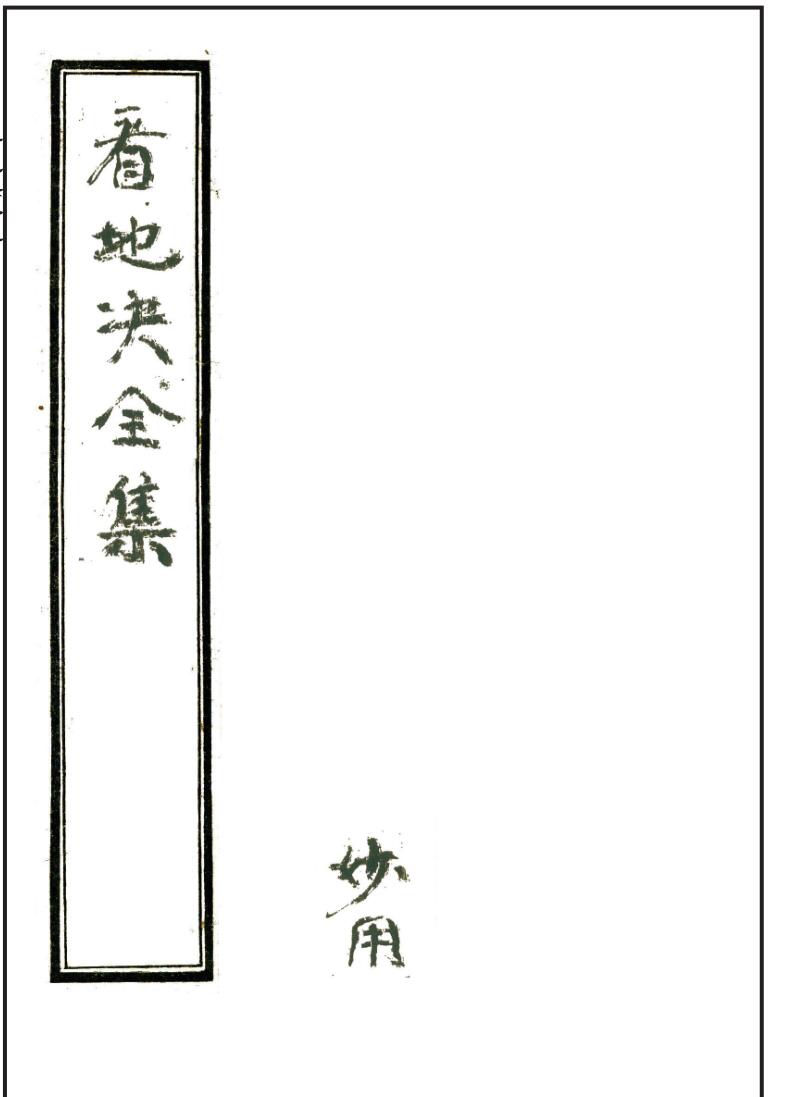 看地决全集
妙用